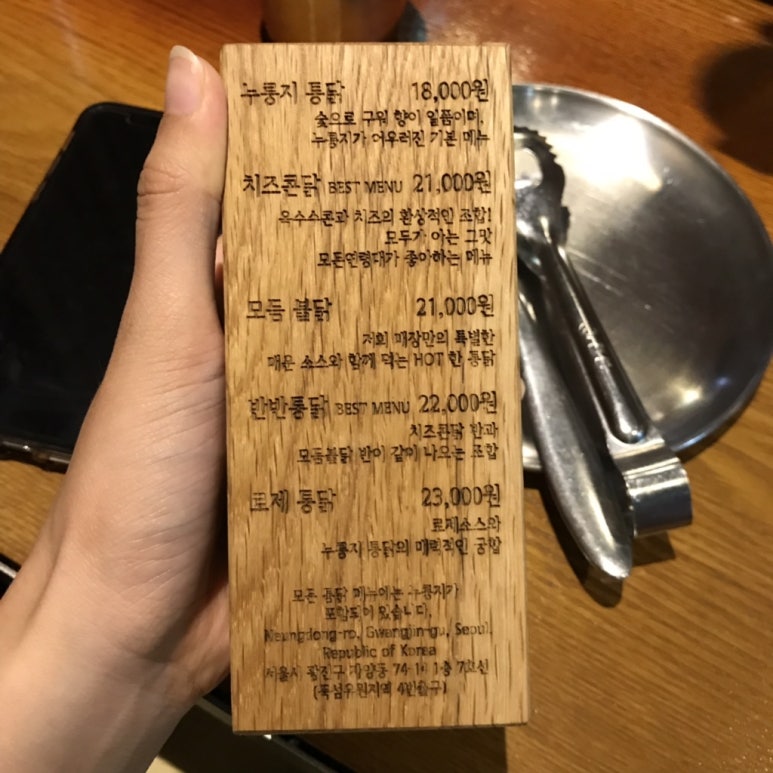 누룽지 통닭 18,000원
숯으로 구워 향이 일품이며,
누룽지가 어우러진 기본 메뉴
치즈콘닭 BEST MENU 21,000원
옥수수콘과 치즈의 환상적인 조합!
모두가 아는 그맛
모든연령대가 좋아하는 메뉴
모듬 불닭 21,000원
저희 매장만의 특별한
매운 소스와 함께 먹는 HOT 한 통닭
반반통닭 BEST MENU 22,000원
치즈콘닭 반과
모듬불닭 반이 같이 나오는 조합
로제 통닭 23,000원
로제소스와
누룽지 통닭의 매력적인 궁합
모든 통닭 메뉴에는 누룽지가
포함되어 있습니다.
Neungdong-ro, Gwangjin-gu, Seoul,
Republic of Korea
서울시 광진구 자양동 1층
(뚝섬유원지역 4번출구)